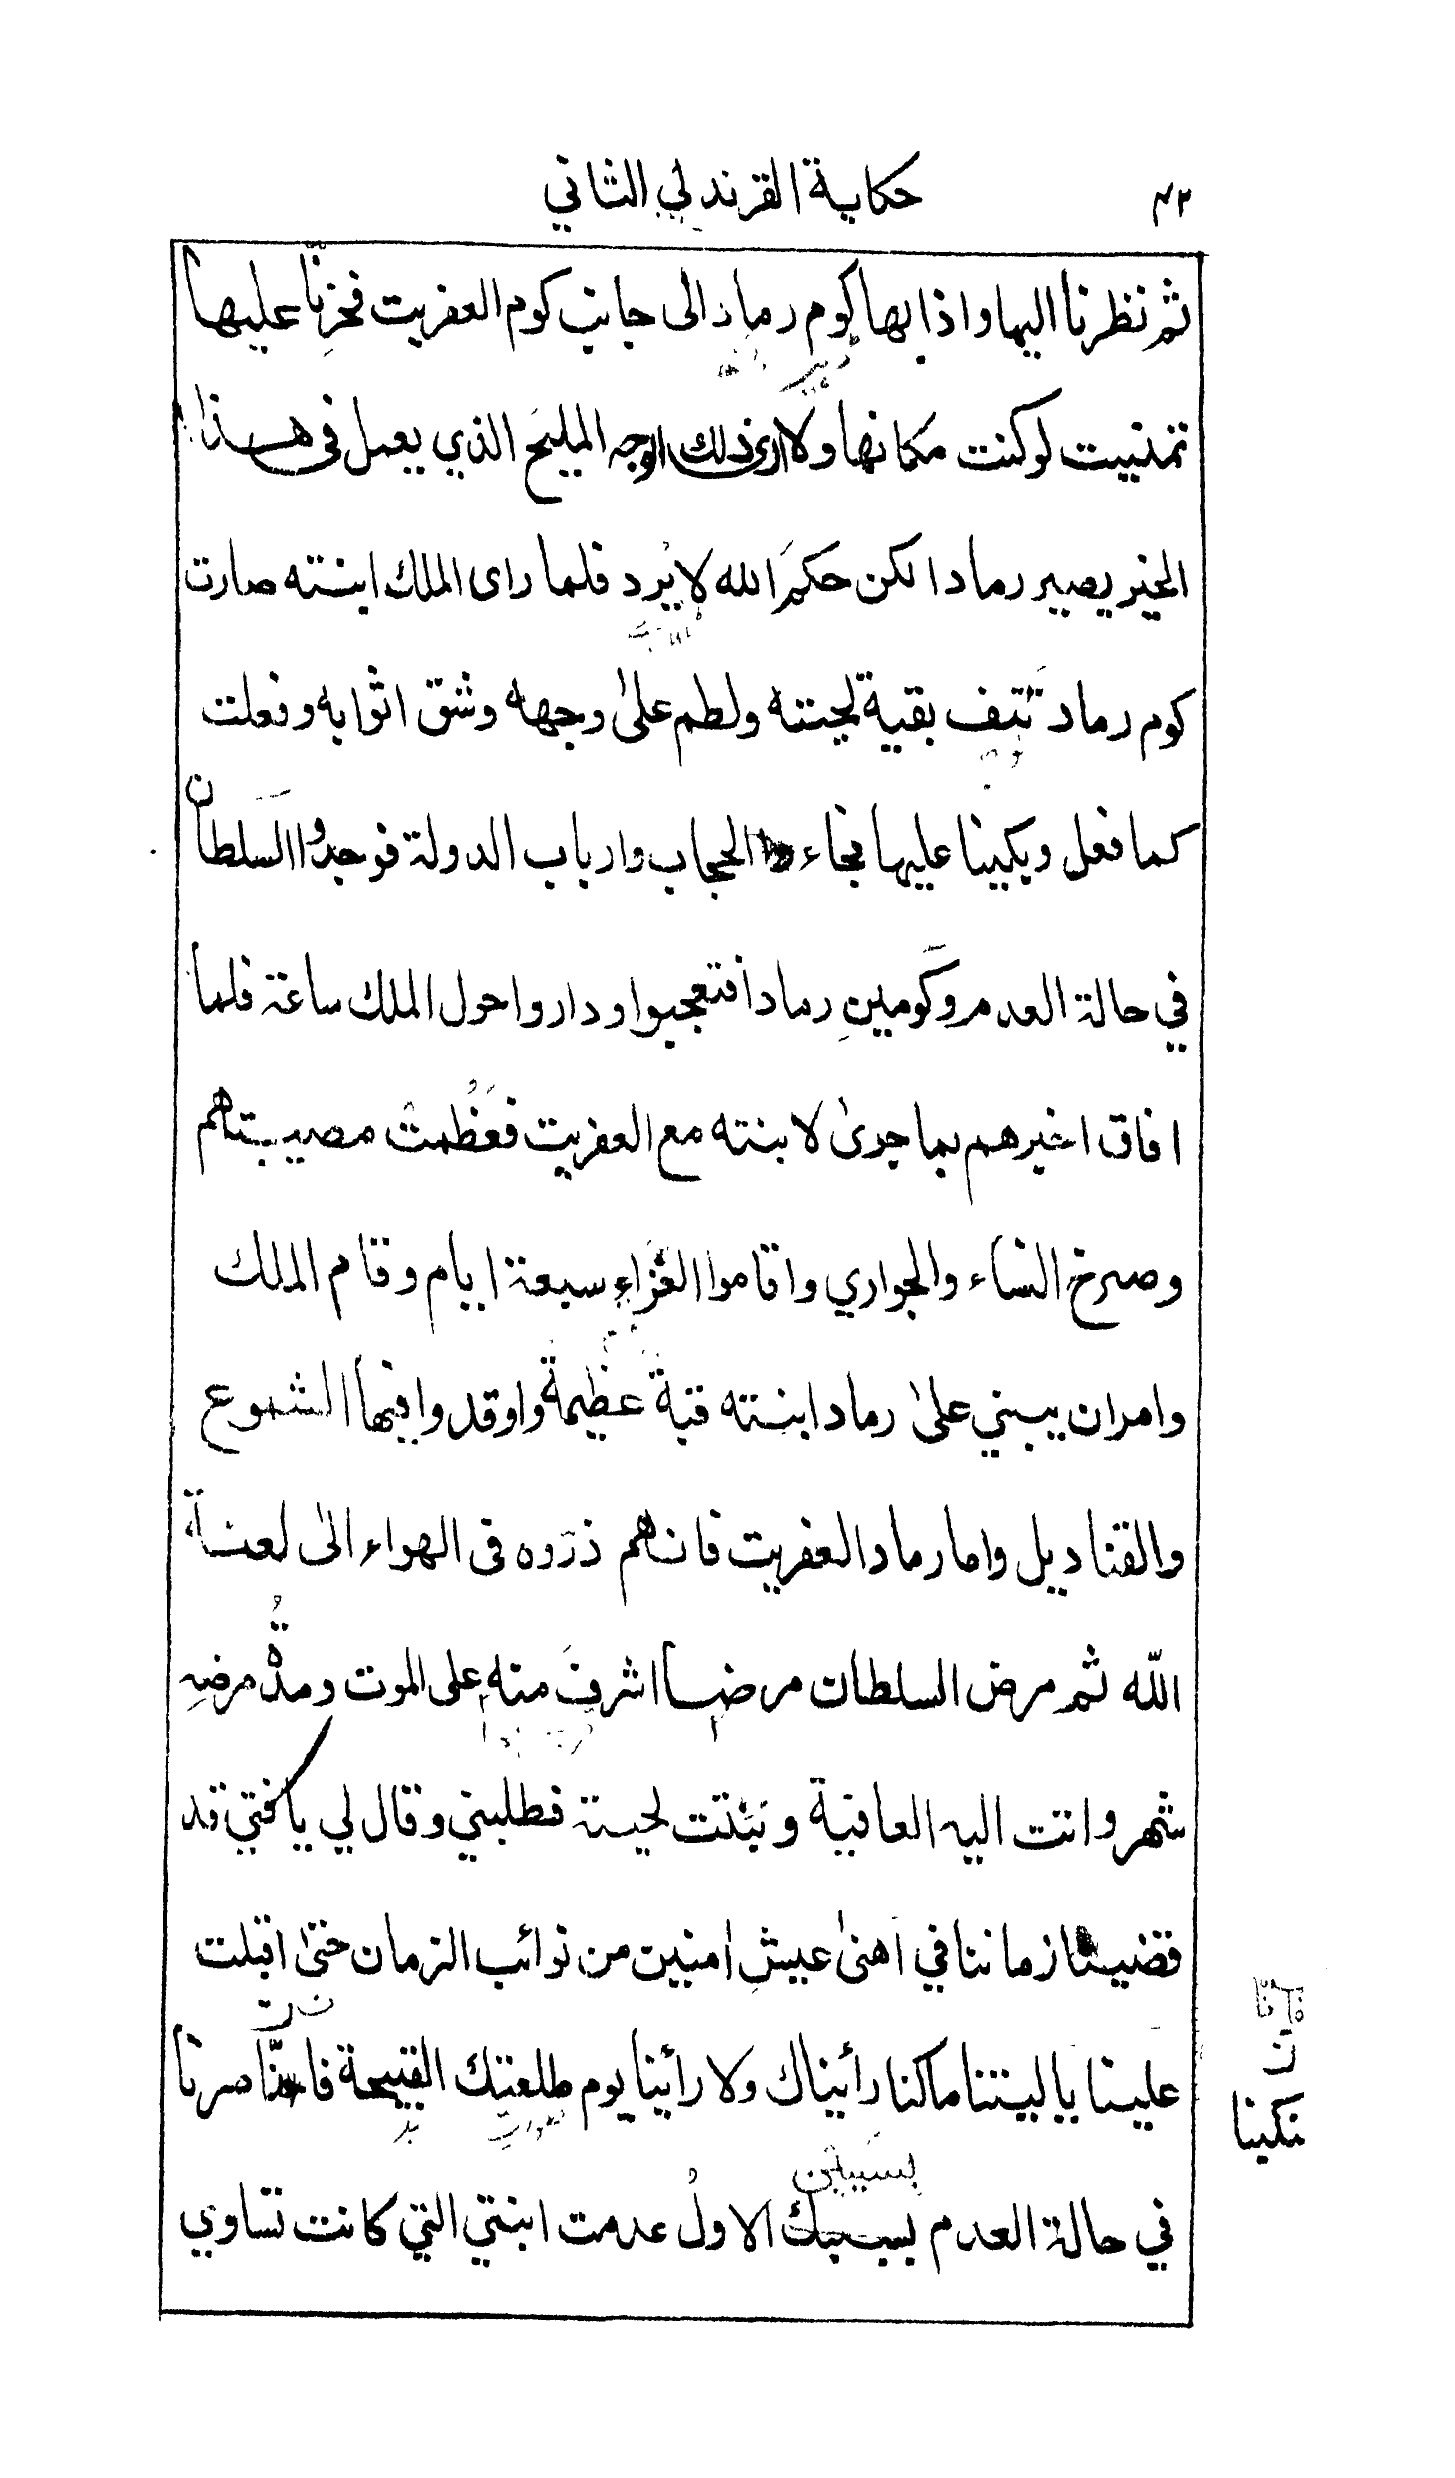 ٤٢ حكاية القرندلي الثاني
ثم نظرنا اليها واذا بها كوم رماد الى جانب كوم العفريت فحزنّا عليها
تمنيت لو كنت مكانها ولا ارى ذلك الوجه المليح الذي يعمل في هذا
الخير يصير رمادا لكن حكمَ الله لا يُرد فلما راى الملك ابنته صارت
كوم رماد نَتَف بقية لحيته ولطم على وجهه وشق اثوابه وفعلت
كما فعل وبكينا عليها فجاء الحجاب وارباب الدولة فوجدوا السلطان
في حالة العدم وكَومين رمادا فتعجبوا وداروا حول الملك ساعة فلما
افاق اخبرهم بما جرى لابنته مع العفريت فعَظُمت مصيبتهم
وصرخ النساء والجواري واقاموا العَزاءِ سبعة ايام وقام الملك
وامر ان يبني على رماد ابنته قبة عظيمة واوقدوا فيها الشموع
والقناديل واما رماد العفريت فانهم ذرّوه فى الهواء الى لعنة
الله ثم مرض السلطان مرضا اشرفَ منه على الموت ومدةُ مرضه
شهر واتت اليه العافية ونبتت لحيته فطلبني وقال لي يا فتي قد
قضينا زماننا في اهنى عيشِ امنين من نوائب الزمان حتى اقبلت
علينا يا ليتنا ما كنا رأيناك ولا رأينا يوم طلعتك القبيحة صرنا
نكينا
بسببين
في حالة العدم بسببك الاولُ عدمت ابنتي التي كانت تساوي